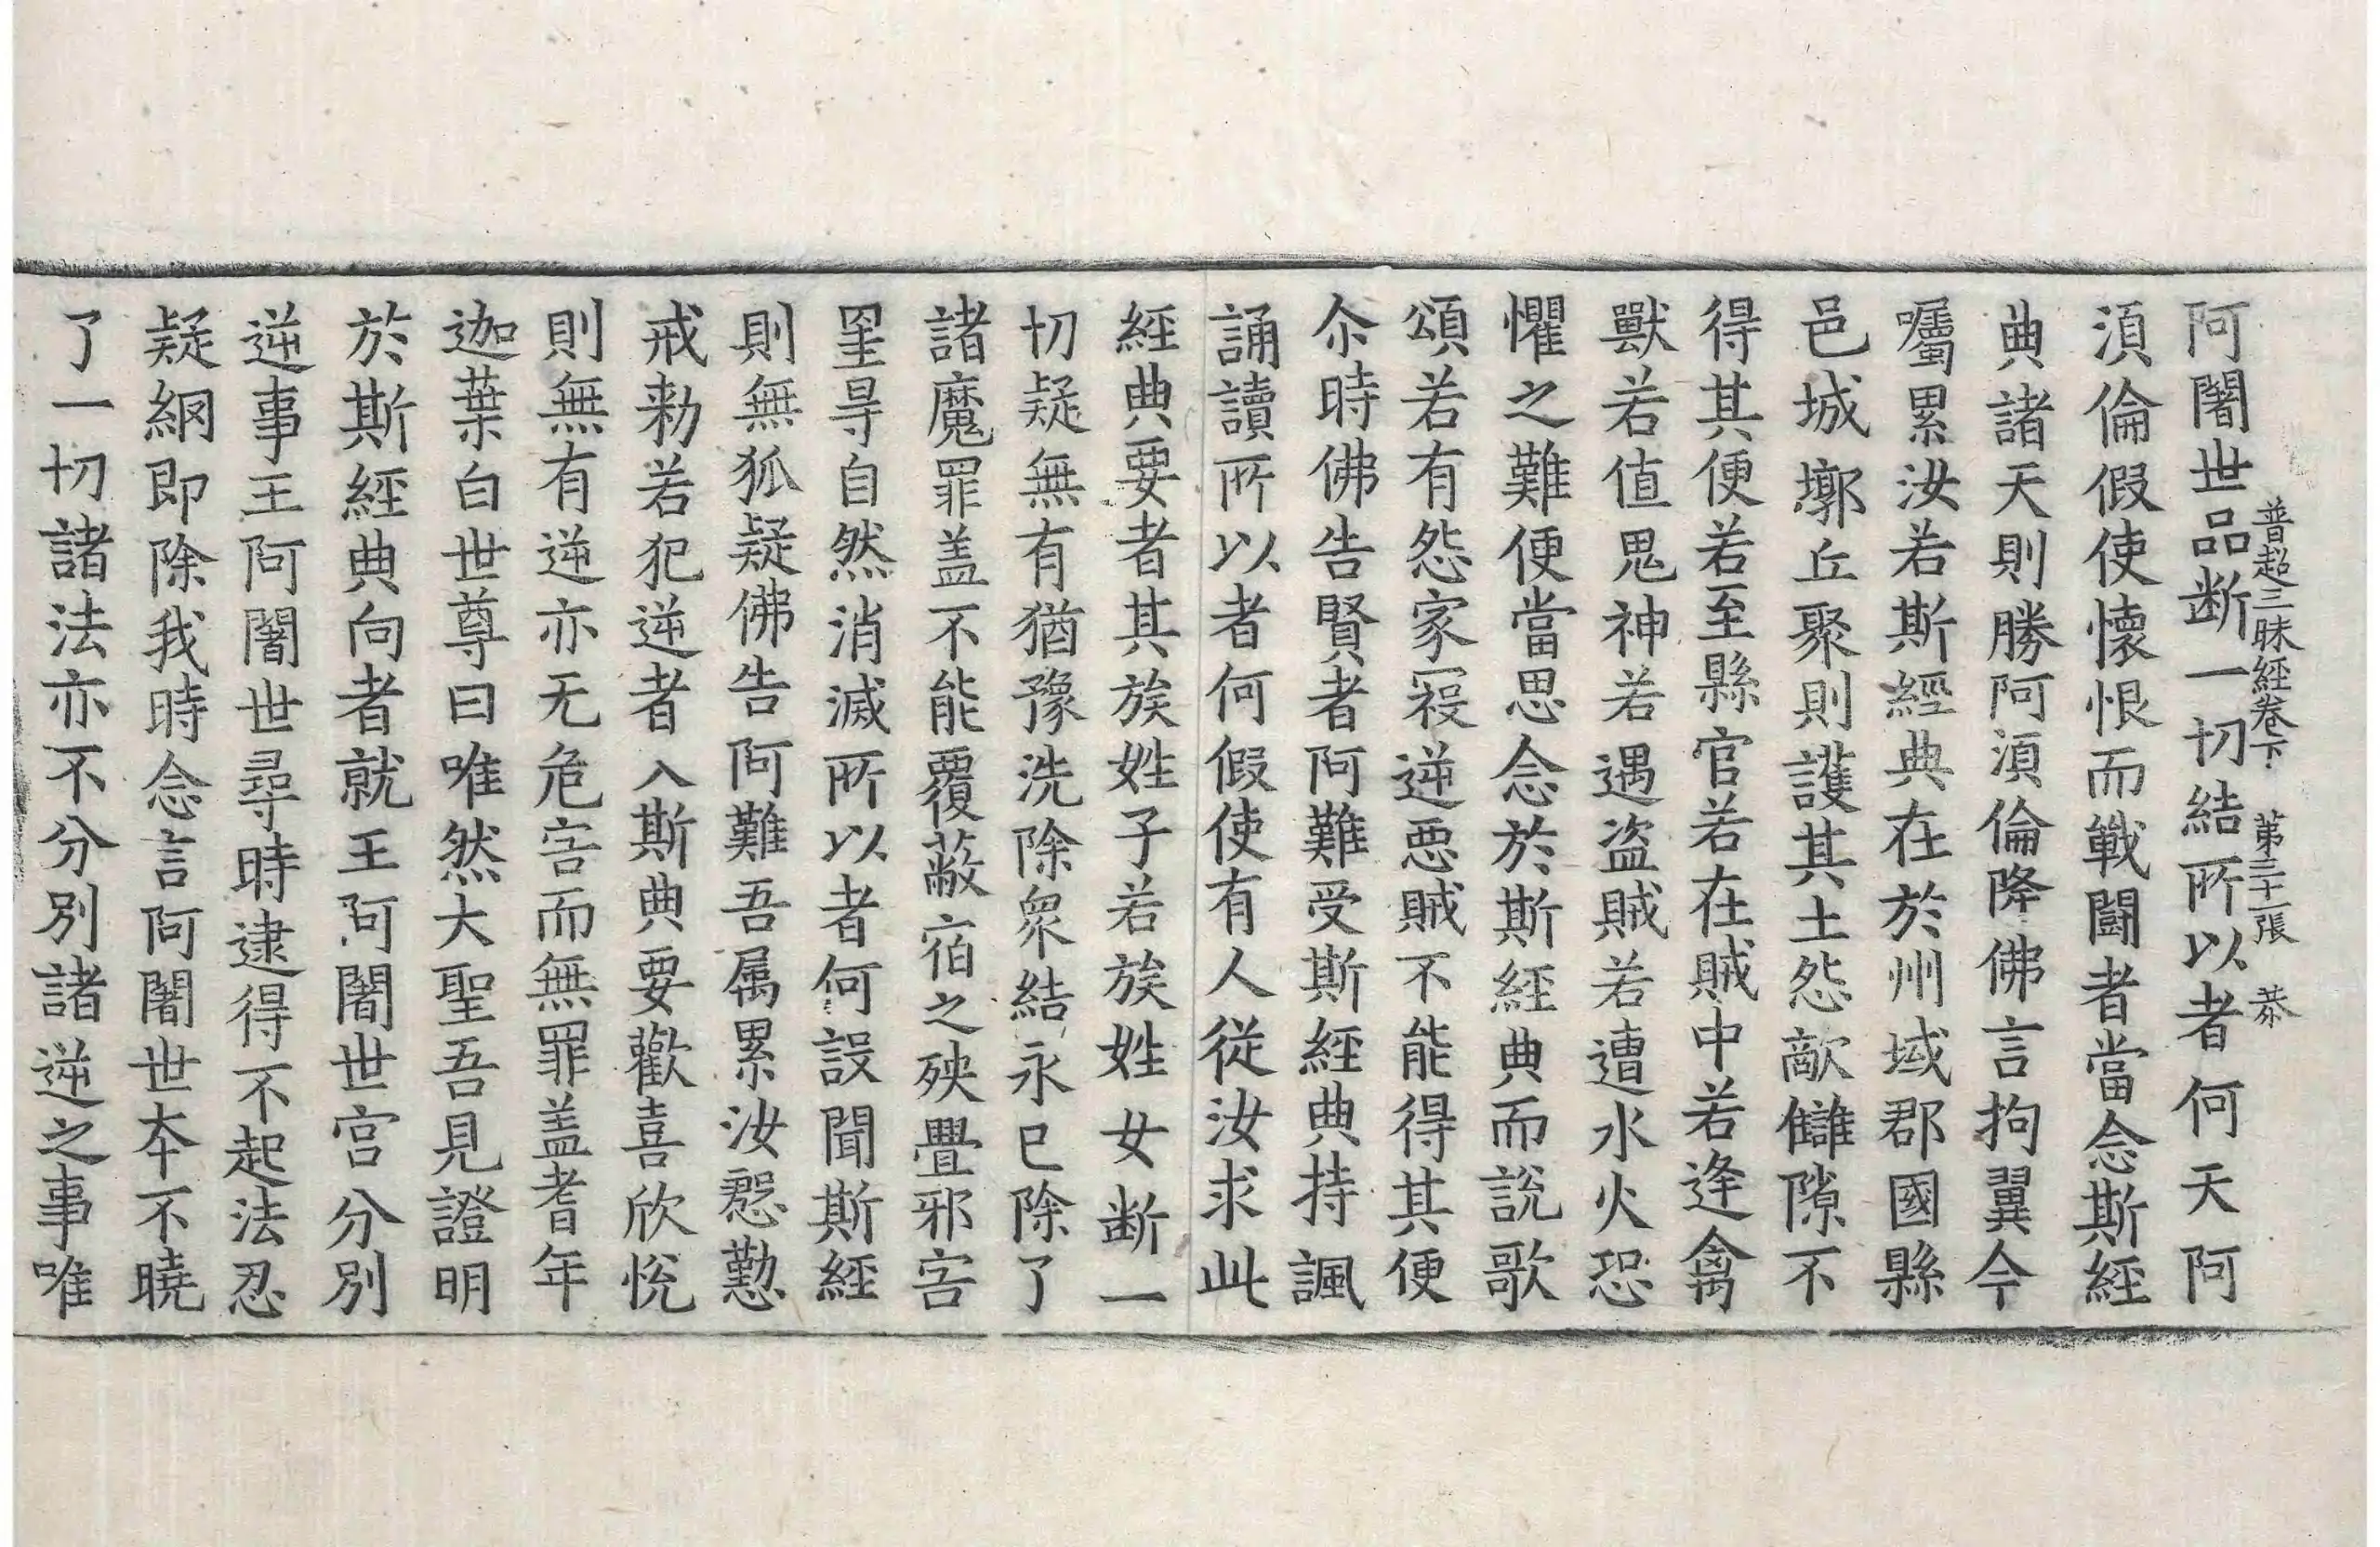 普超三昧經卷下 第三十一張 恭
阿闍世品断一切結所以者何天阿
湏倫假使懷恨而戰鬪者當念斯經
典諸天則勝阿湏倫降佛言拘翼今
囑累汝若斯經典在於州域郡國縣
邑城墎丘聚則護其土怨敵讎隙不
得其便若至縣官若在賊中若逢禽
獸若值鬼神若遇盗賊若遭水火恐
懼之難便當思念於斯經典而說歌
頌若有怨家寇逆惡賊不能得其便
尒時佛告賢者阿難受斯經典持諷
誦讀所以者何假使有人從汝求此
經典要者其族姓子若族姓女断一
切疑無有猶豫洗除衆結永已除了
諸魔罪盖不能覆蔽宿之殃疊邪害
罣㝵自然消滅所以者何設聞斯經
則無狐疑佛告阿難吾属累汝慇懃
戒勑若犯逆者入斯典要歡喜欣恱
則無有逆亦无危害而無罪盖耆年
迦葉白世尊曰唯然大聖吾見證明
於斯經典向者就王阿闍世宫分别
逆事王阿闍世尋時逮得不起法忍
疑網即除我時念言阿闍世夲不曉
了一切諸法亦不分別諸逆之事唯